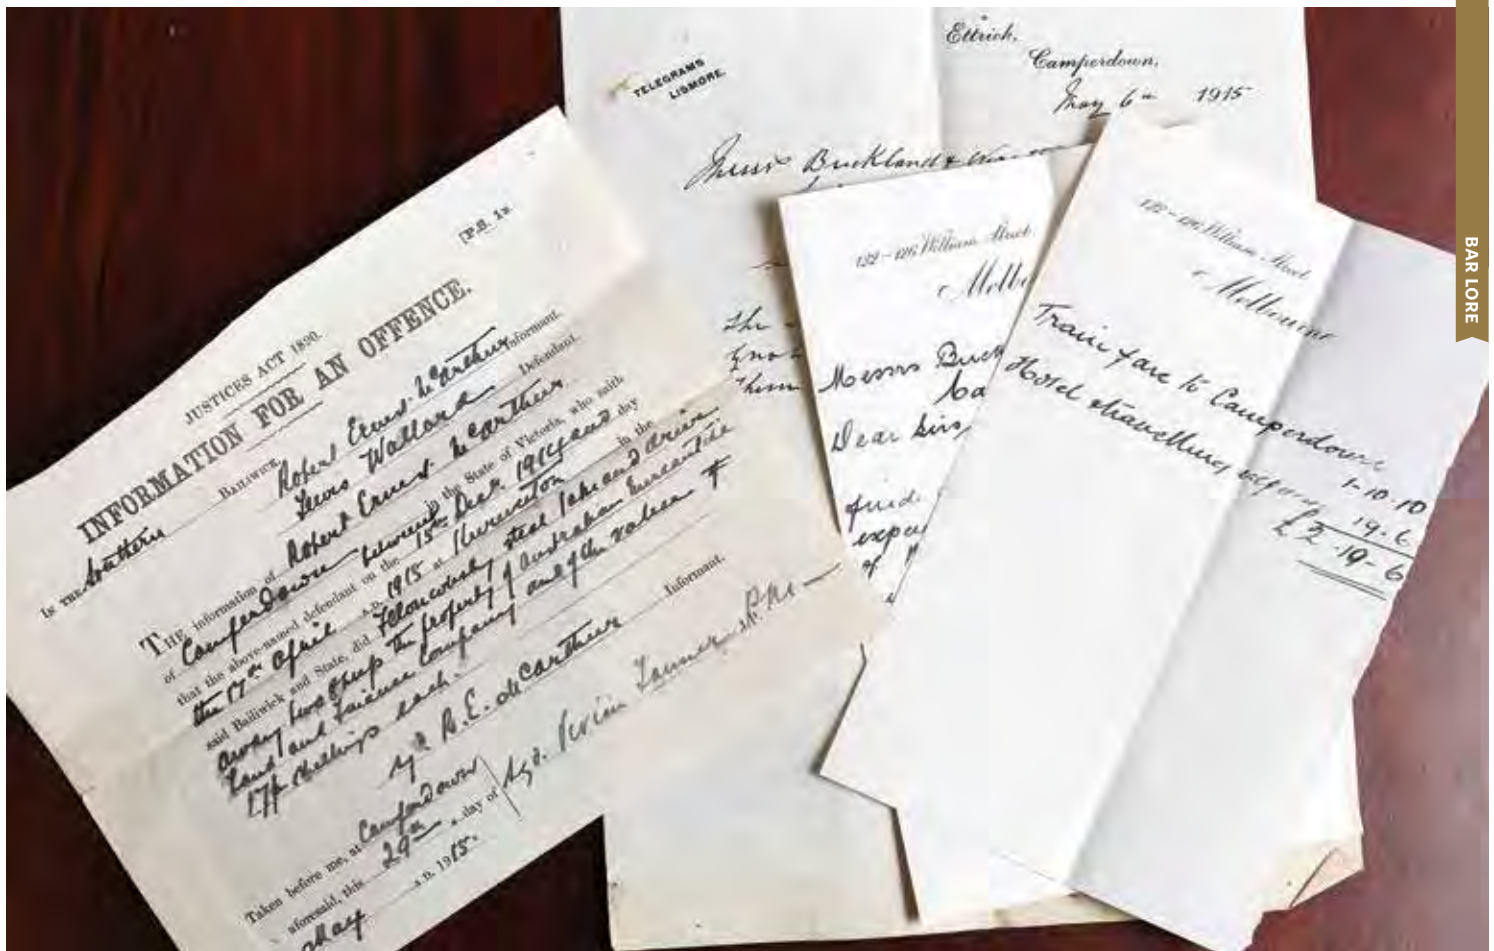 BAR LORE
[P.S. 1v.
JUSTICES ACT 1890.
INFORMATION FOR AN OFFENCE.
In the Southern Bailiwick.
Robert Ernest McArthur Informant.
Lewis Wallard Defendant.
The information of Robert Ernest McArthur
of Camperdown in the State of Victoria, who saith
that the above-named defendant between the 15th Decr 1914 and day
the 17th April A.D. 1915 at in the
said Bailiwick and State, did Feloniously steal take and drive
away two sheep the property of Australian Mercantile
Land and Finance Company and of the value of
17/- shillings each.
R. E. McArthur Informant.
Taken before me, at Camperdown
aforesaid, this 29th day of
May A.D. 1915.
Sgd.
TELEGRAMS
LISMORE.
Ettrick,
Camperdown,
May 6th 1915
Messrs Buckland &
The
them
122-126 William Street
Melb
Messrs Buck
Ca
Dear Sirs,
find
expen
of
122-126 William Street
Melbourne
Train fare to Camperdown 1-10-10
Hotel & travelling 19.6
£2.19-6